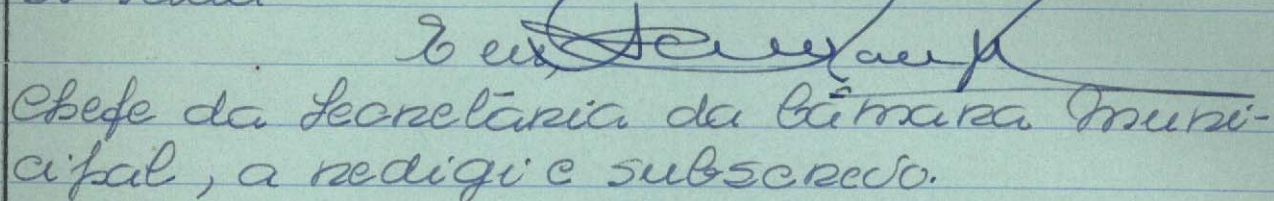 E eu,
Chefe da Secretária da Câmara Muni-
cipal, a redigi e subscrevo.